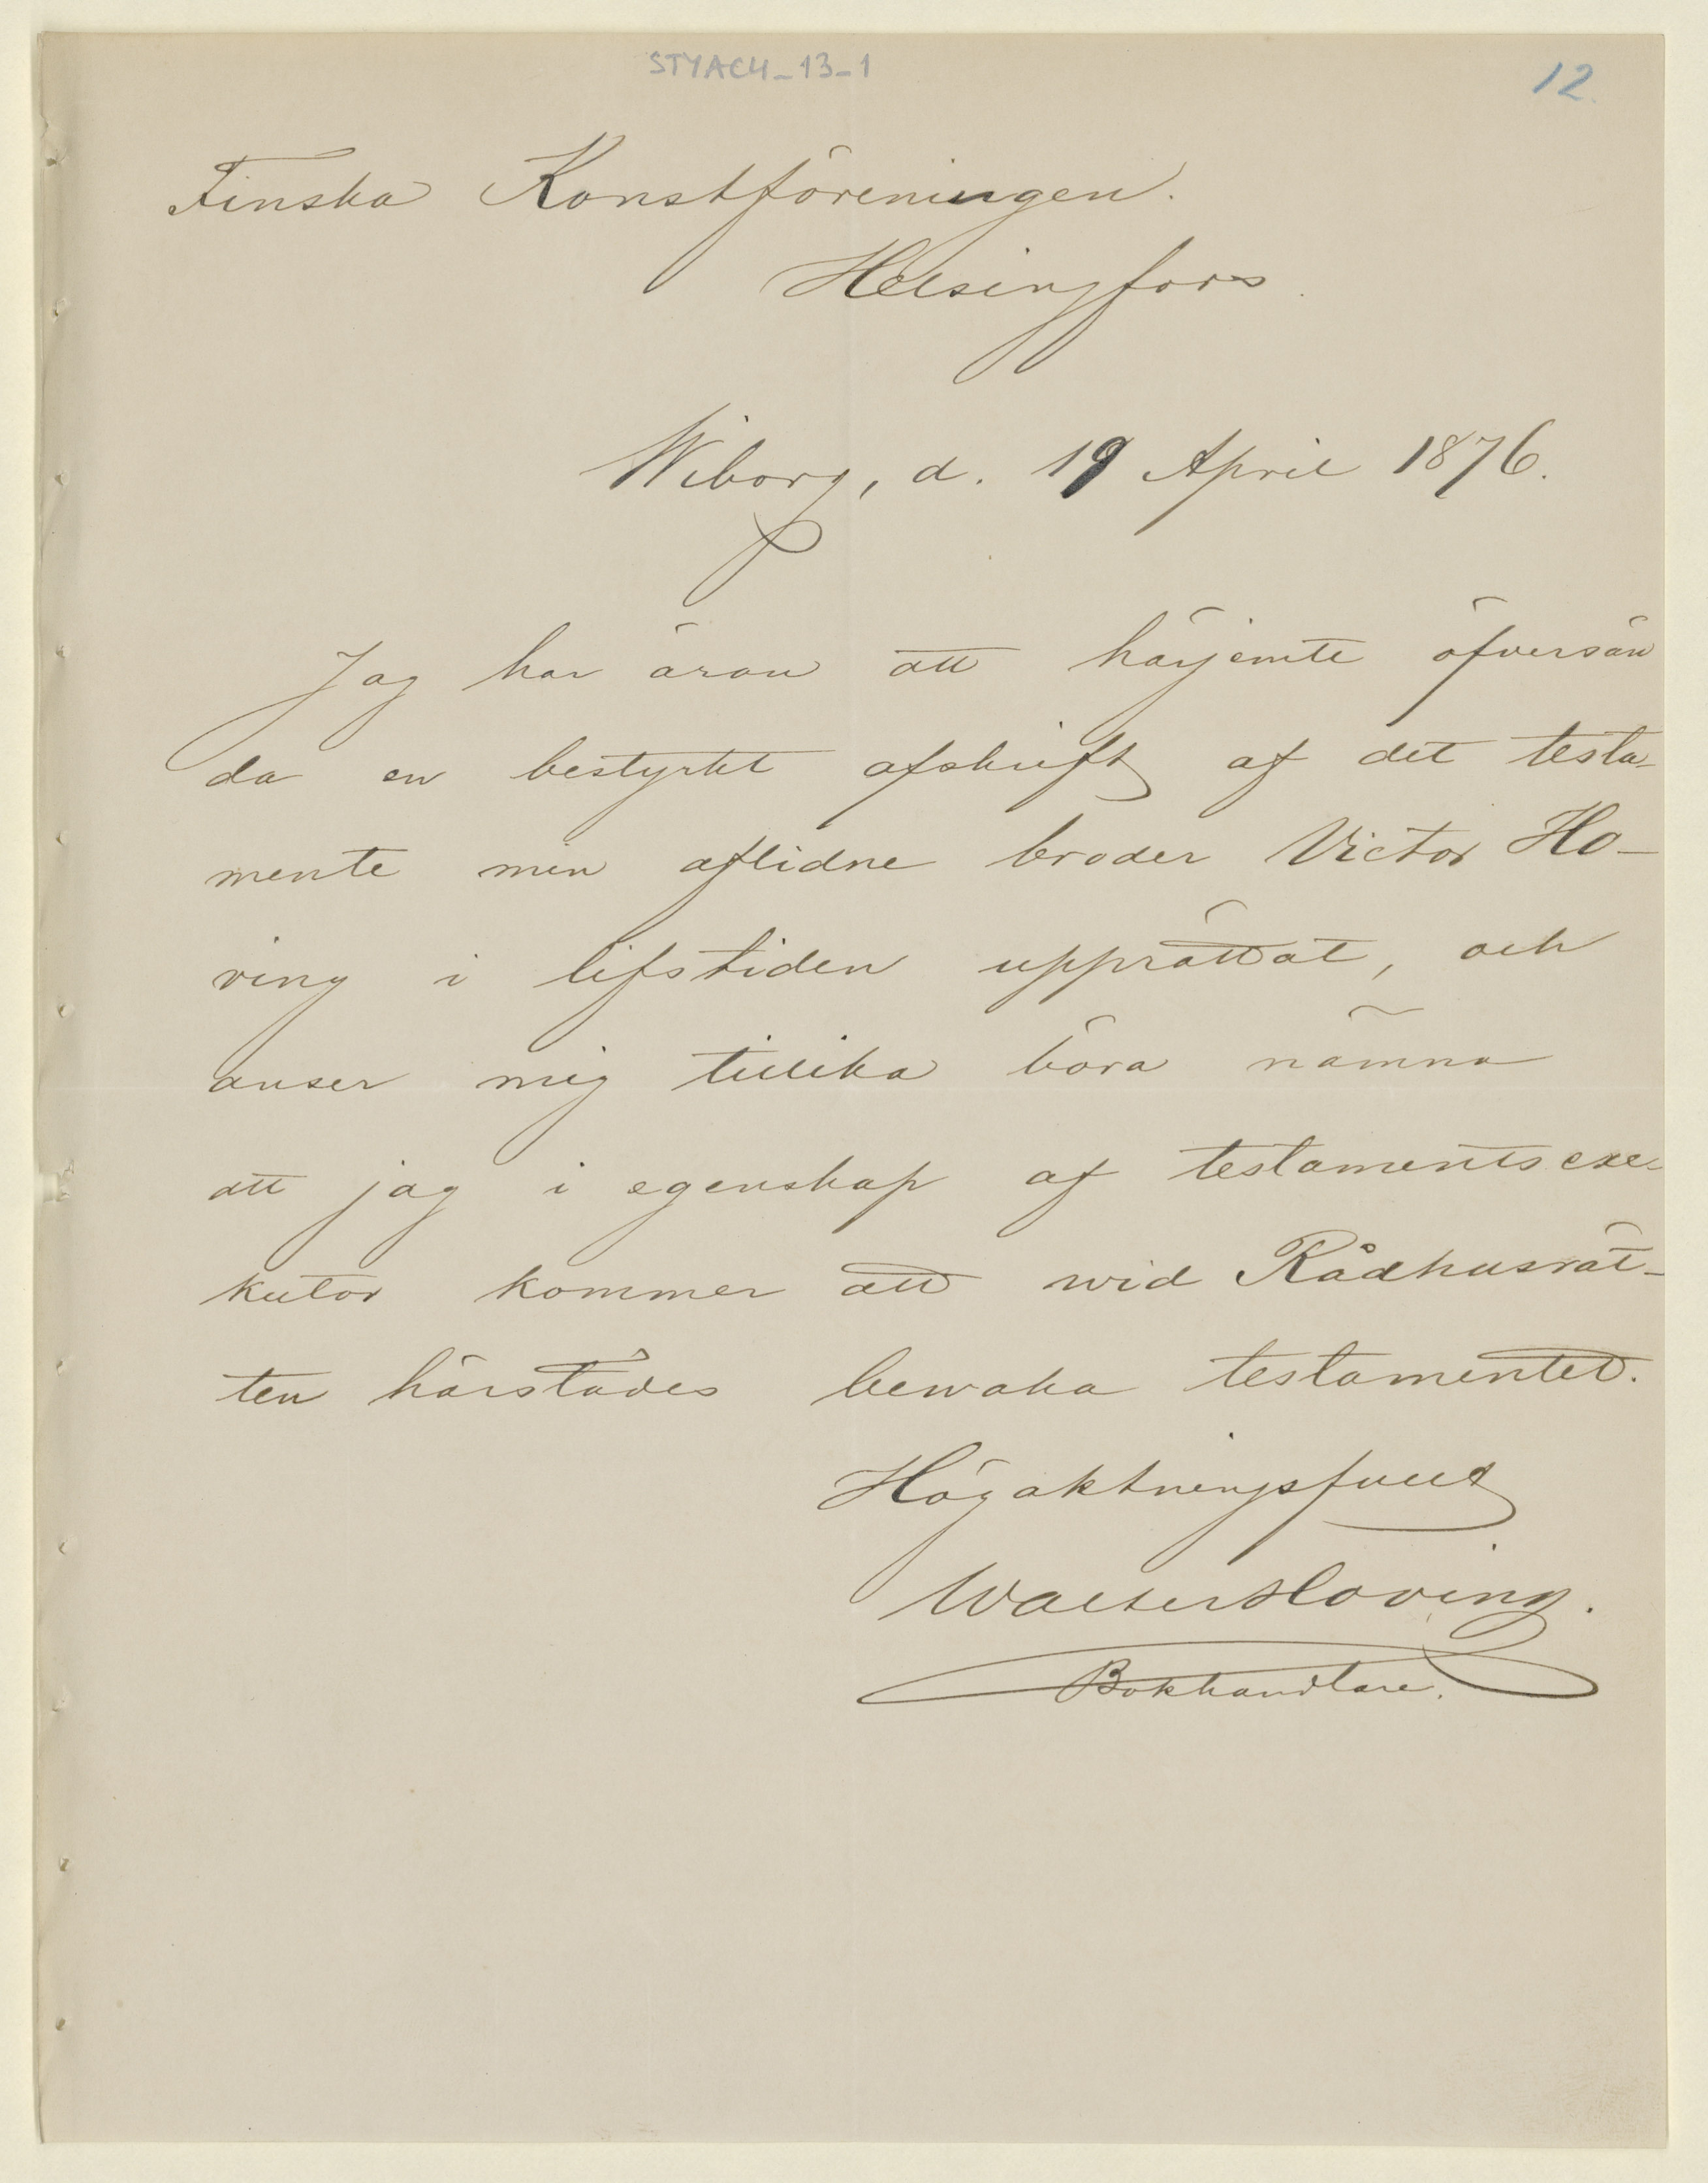 STYAC4_13_1
12.
Finska Konstföreningen.
Helsingfors.
Wiborg, d. 19 April 1876.
Jag har äran att härjemte öfversän
da en bestyrkt afskrift af det testa-
mente min aflidne broder Victor Ho-
ving i lifstiden upprättat, och
anser mig tillika böra nämna
att jag i egenskap af testamentsexe-
kutor kommer att wid Rådhusrät-
ten härstädes bewaka testamentet.
Högaktningsfullt
Walter Hoving.
Bokhandlare.